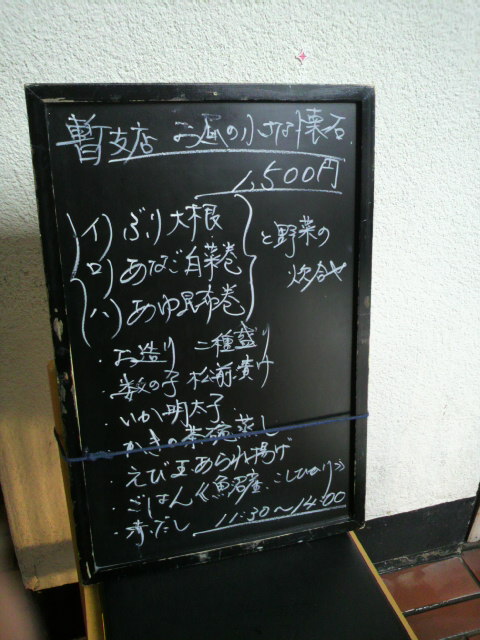 暫支店 お昼の小さな懐石
1,500円
イ) ぶり大根
ロ) あなご白菜巻
ハ) あゆ昆布巻
と野菜の
炊合せ
・お造り 二種盛り
・数の子 松前漬け
・いか明太子
・かきの茶碗蒸し
・えび玉あられ揚げ
・ごはん(魚沼産こしひかり)
・赤だし 11:30〜14:00